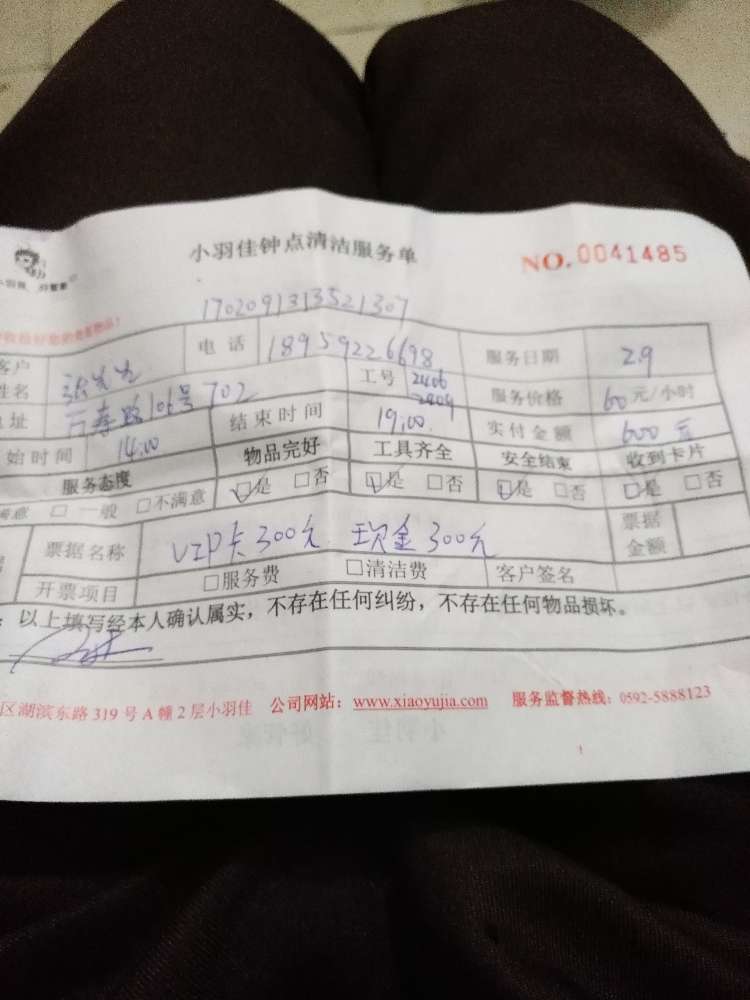 小羽佳钟点清洁服务单 NO. 0041485
1702091313521307
电话 18959226698 服务日期 2.9
姓名 工号 2406 服务价格 60元/小时
万寿路106号702 2409
始时间 14.00 结束时间 19.00 实付金额 600元
服务态度 物品完好 工具齐全 安全结束 收到卡片
□一般 □不满意 □是 □否 □是 □否 □是 □否 □是 □否
票据名称 VIP卡300元 现金300元 票据金额
开票项目 □服务费 □清洁费 客户签名
:以上填写经本人确认属实,不存在任何纠纷,不存在任何物品损坏。
区湖滨东路319号A幢2层小羽佳 公司网站:www.xiaoyujia.com 服务监督热线:0592-5888123